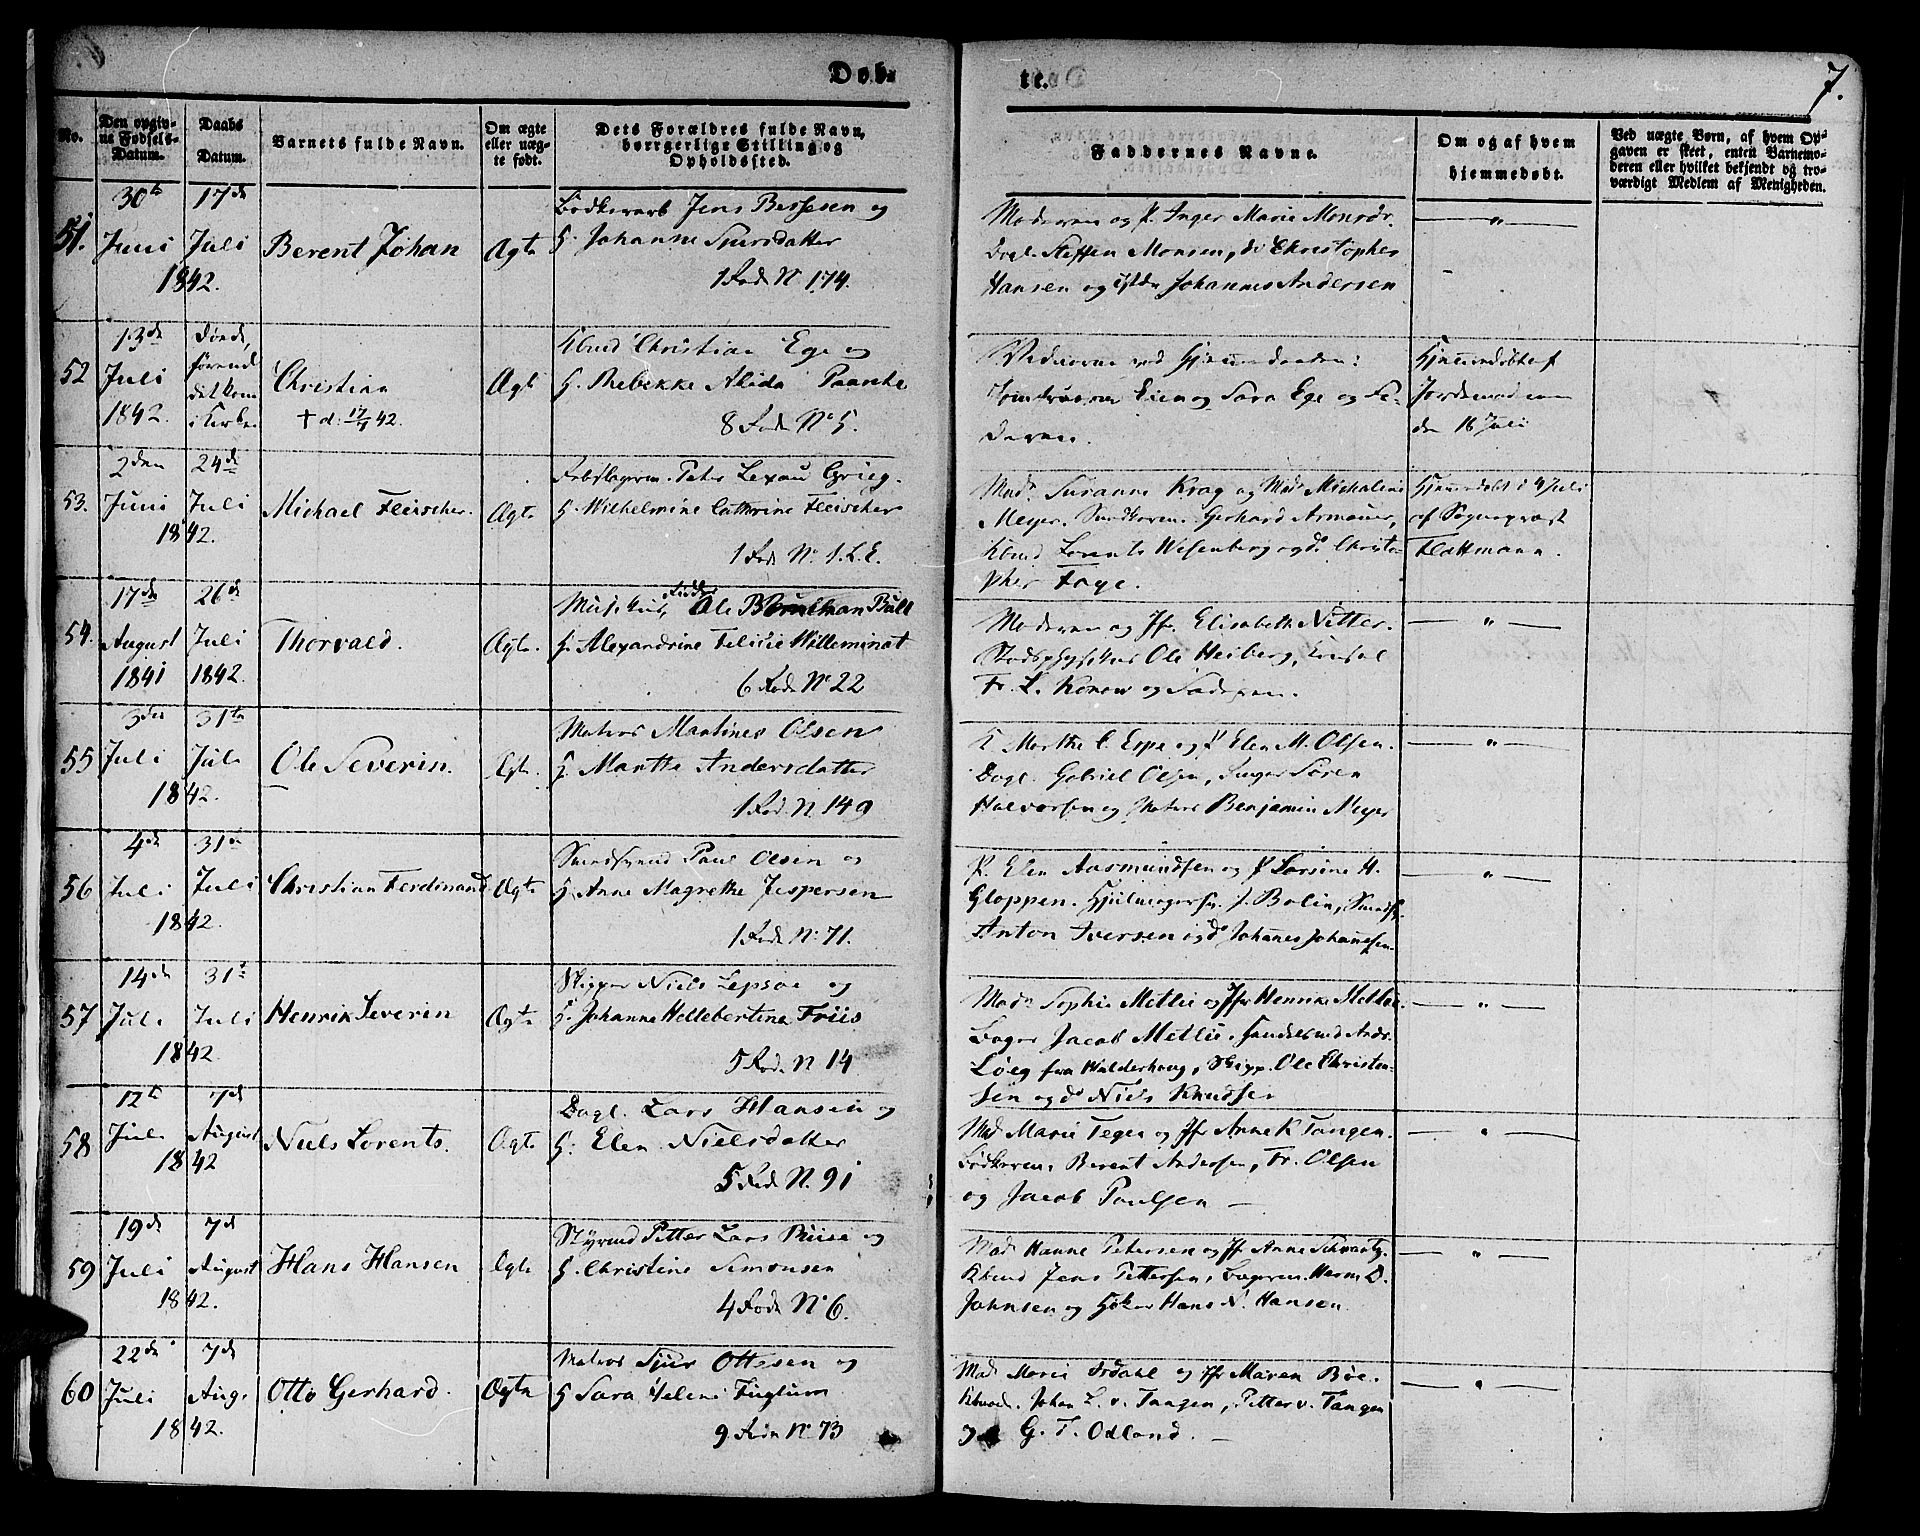 Døb=
te.
7.
No.
Den opgiv-
ne Fødsels-
Datum.
Daabs
Datum.
Barnets fulde Navn.
Om ægte
eller uæg-
te født.
Dets Forældres fulde Navn,
borgerlige Stilling og
Opholdssted.
Faddernes Navne.
Om og af hvem
hjemmedøbt.
Ved uægte Børn, af hvem Op-
gaven er skeet, enten Barnemo-
deren eller hvilket bekjendt og tro-
værdigt Medlem af Menigheden.
51.
30te
Juni
1842.
17de
Juli
Berent Johan
Ægte
Jens Bessesen og
H. Johanne Sjursdatter
1 Rode N 174.
Moderen og P. Inger Marie Monsdr.
Dagl. Steffen Monsen, do Christopher
Hansen og Johannes Andersen
52
13de
Juli
1842.
Døde,
førend
det kom
i Kirken
Christian
† d: 17/7 42.
Ægte
Kbmd Christian Ege og
H. Rebekke Alida Paasche
8 Rode No 5.
Sara Ege og Fa-
deren.
Hjemmedøbt af
Jordemoderen
den 16 Juli
53.
2den
Juni
1842.
24de
Juli
Michael Fleischer.
Ægte
Peter Lexau Grieg.
H. Wilhelmine Cathrine Fleischer
1 Rode No 1. L. E.
Mad. Susanne Krag og Mad. Michaline
Meyer. Gerhard Armauer,
Kbmd Lorents Wesenberg og do Christo-
pher Faye.
Hjemmedøbt d 4 Juli
af Sogneprest
Flottmann.
54.
17de
August
1841
26de
Juli
1842.
Thorvald.
Ægte.
Musikus, Ole Bornemann Bull
H. Alexandrine Felicie Willeminot
6 Rode No 22
Moderen og Jfr. Elisabeth Nitter.
Stadsphysikus Ole Heiberg, Konsul
Fr. L. Konow og Faderen.
55
3die
Juli
1842.
31te
Juli
Ole Severin.
Ægte.
Matros Martines Olsen
H. Marthe Andersdatter
1 Rod. N. 149
K Marthe C. Espe og P Elen M. Olsen.
Dagl. Gabriel Olsen, Søren
Halvorsen og Matros Benjamin Meyer
56
4de
Juli
1842.
31te
Juli
Christian Ferdinand
Ægte
Smedsvend Paul Olsen og
H. Anne Magrethe Jespersen
1 Rode No 71.
P. Elen Aasmundsen og P Lorsine H.
Gloppen. J. Bolin,
Anton Iversen og do Johannes Johannesen.
57
14de
Juli
1842.
31te
Juli
Henrik Severin
Ægte
Skipper Niels Lepsøe og
H. Johanne Hellebertine Friis
5 Rode N 14
Mad. Sophie Meltie og Jfr Henrike Meltie.
Bager Jacob Meltie, Handelsmd Ands.
Løeg fra Walderhoug, Skipp. Ole Christen-
sen og do Niels Knudsen
58
12te
Juli
1842
7de
August
Niels Lorents.
Ægte
Dagl. Lars Hansen og
H. Elen Nielsdatter
5 Rode N. 91
Mad Marie Teger og Jfr Anne K Tangen.
Bødkeren. Berent Andersen, Fr. Olsen
og Jacob Paulsen
59
19de
Juli
1842.
7de
August
Hans Hansen
Ægte
Styrmd Petter Lars Riise og
H. Christine Simonsen
4 Rode No 6.
Mad. Hanne Petersen og Jfr Anne Schwartz.
Kbmd Jens Pettersen, Herm D.
Johnsen og Høker Hans N. Hansen.
60
22de
Juli
1842.
7de
Aug.
Otto Gerhard.
Ægte
Matros Sjur Ottesen og
H Sara Helene Fuglum
9 Rode No 73
Mad Marie Ordahl og Jfr Maren Bøe.
Johan L. v. Tangen, Petter v. Tangen
og G. T. Odland.